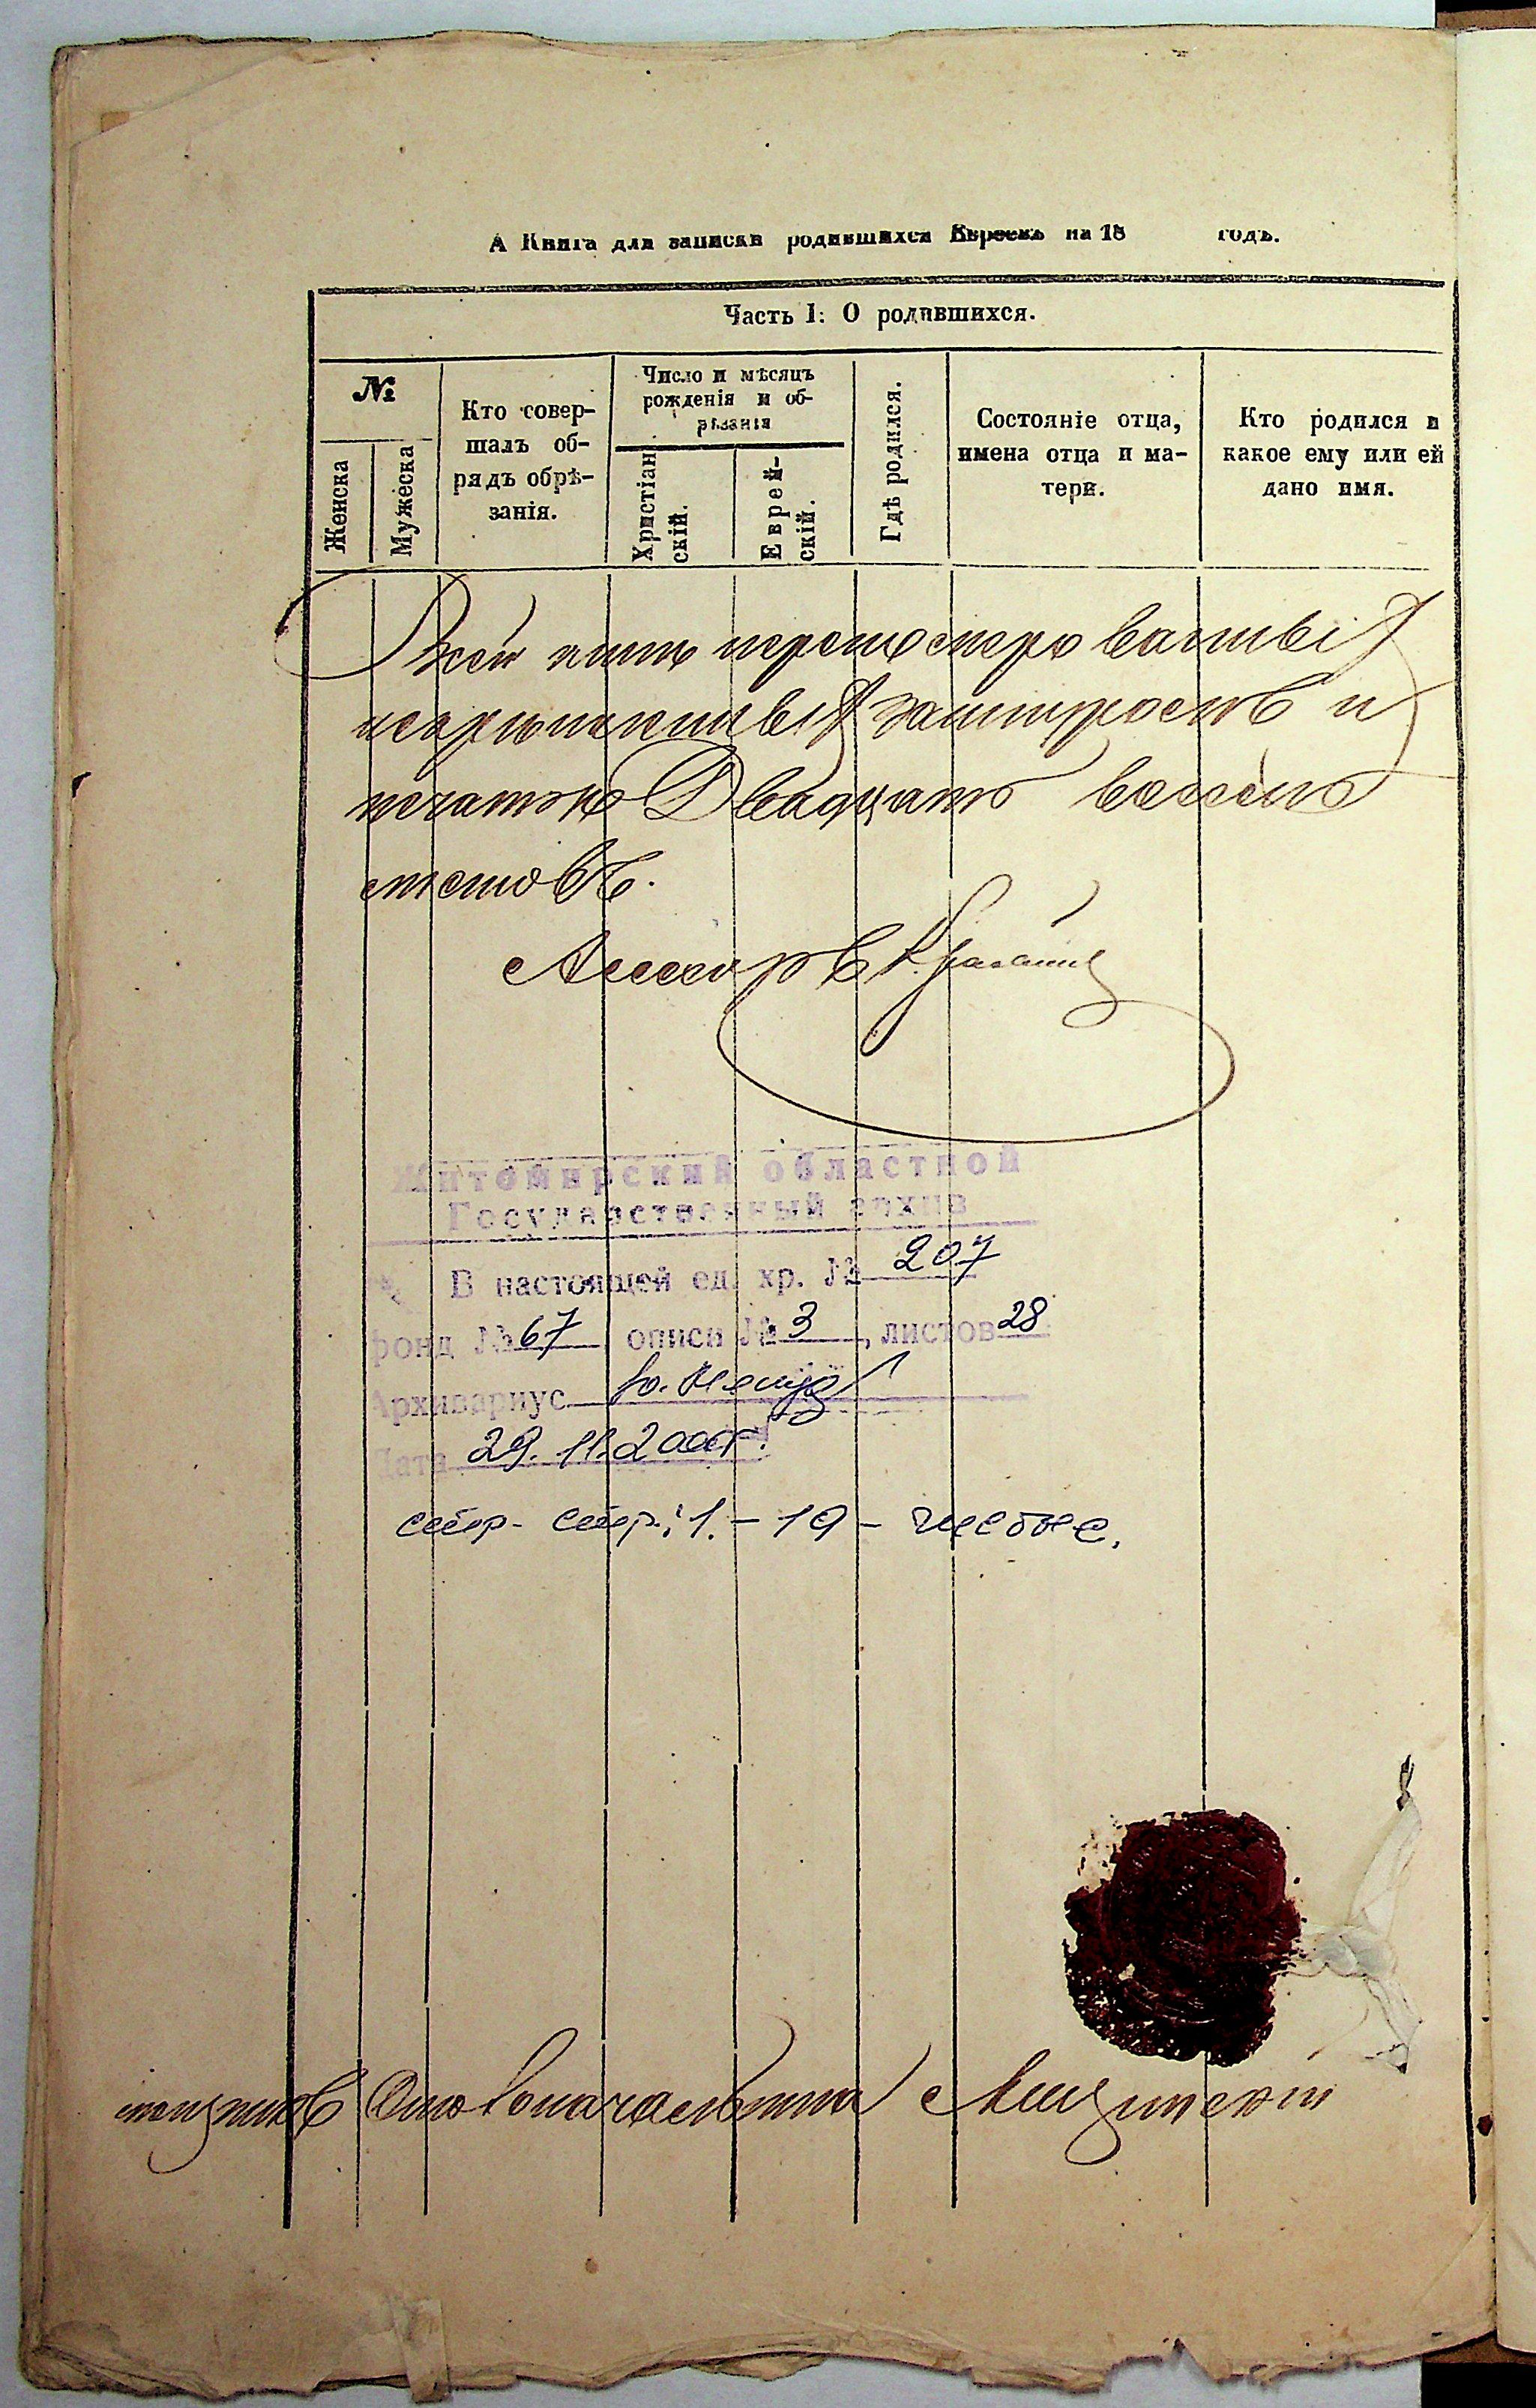 А Книга для записки родившихся Евреевъ на 18 годъ.
Часть I: О родившихся.
№
Женска
Мужеска
Кто совер-
шалъ об-
рядъ обрѣ-
занія.
Число и мѣсяцъ
рожденія и об-
рѣзанія
Христіан
скій.
Еврей-
скій.
Гдѣ родился.
Состояніе отца,
имена отца и ма-
тери.
Кто родился и
какое ему или ей
дано имя.
В сей книгѣ перенумерованныхъ
и скрепленныхъ за шнуромъ и
печатью Двадцать восемь
листовъ.
Ассесоръ
Житомирский областной
Государственный архив
В настоящей ед. хр. № 207
фонд № 67, описи № 3, листов 28
Архивариус
Дата 29.11.2000г.
стр. стр.: 1.-19 - чистые.
Столоначальника